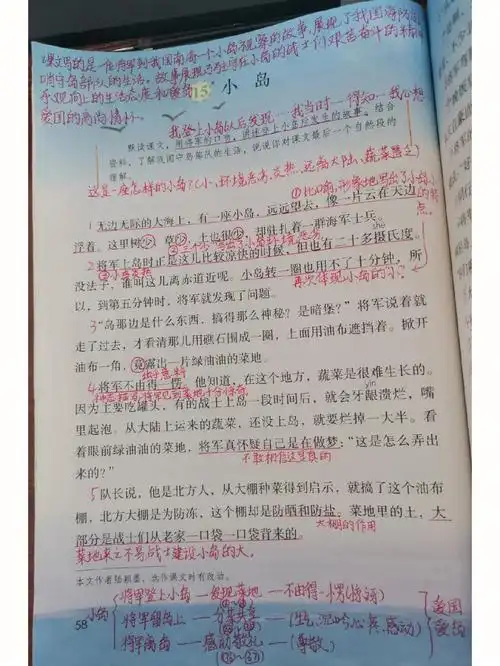 课文写的是一位将军到我国南海一个小岛视察的故事,展现了我国海防前
哨守岛部队的生活。故事展现了守在小岛的战士们艰苦奋斗的精神
乐观向上的生活态度和
爱国的高尚情怀。
15 小岛
我登上小岛以后发现——我当时——得知——我心想
默读课文,用将军的口吻,讲述登上小岛后发生的故事。结合
资料,了解我国守岛部队的生活,说说你对课文最后一个自然段的
理解。
这是一座怎样的小岛?(小、环境恶劣、炎热、远离大陆、蔬菜匮乏)
①比喻,形象地写出了小岛的特点。
1 无边无际的大海上,有一座小岛,远远望去,像一片云在天边
浮着。这里树少,草少,土也很少,却驻扎着一群海军士兵。
2 将军上岛时正是这儿比较凉快的时候,但也有二十多摄氏度。
shè
没法子,谁叫这儿离赤道近呢。小岛转一圈也用不了十分钟,所
再次体现小岛的小
以,到第五分钟时,将军就发现了问题。
3 “岛那边是什么东西,搞得那么神秘?是暗堡?”将军说着就
走了过去,才看清那儿用礁石围成一圈,上面用油布遮挡着。掀开
油布一角,竟露出一片绿油油的菜地。
出乎意料
4 将军不由得一愣。他知道,在这个地方,蔬菜是很难生长的。
yín
因为主要吃罐头,有的战士上岛一段时间后,就会牙龈溃烂,嘴
里起泡。从大陆上运来的蔬菜,还没上岛,就要烂掉一大半。看
着眼前绿油油的菜地,将军真怀疑自己是在做梦:“这是怎么弄出
来的?”
不敢相信这是真的
5 队长说,他是北方人,从大棚种菜得到启示,就搞了这个油布
棚,北方大棚是为防冻,这个棚却是防晒和防盐。菜地里的土,大
大棚的作用
部分是战士们从老家一口袋一口袋背来的。
菜地来之不易,战士建设小岛的
本文作者陆颖墨,选作课文时有改动。
小岛
将军登上小岛——发现菜地——不由得一愣(惊讶)
将军离岛——感动敬礼——(尊敬)
爱国
58